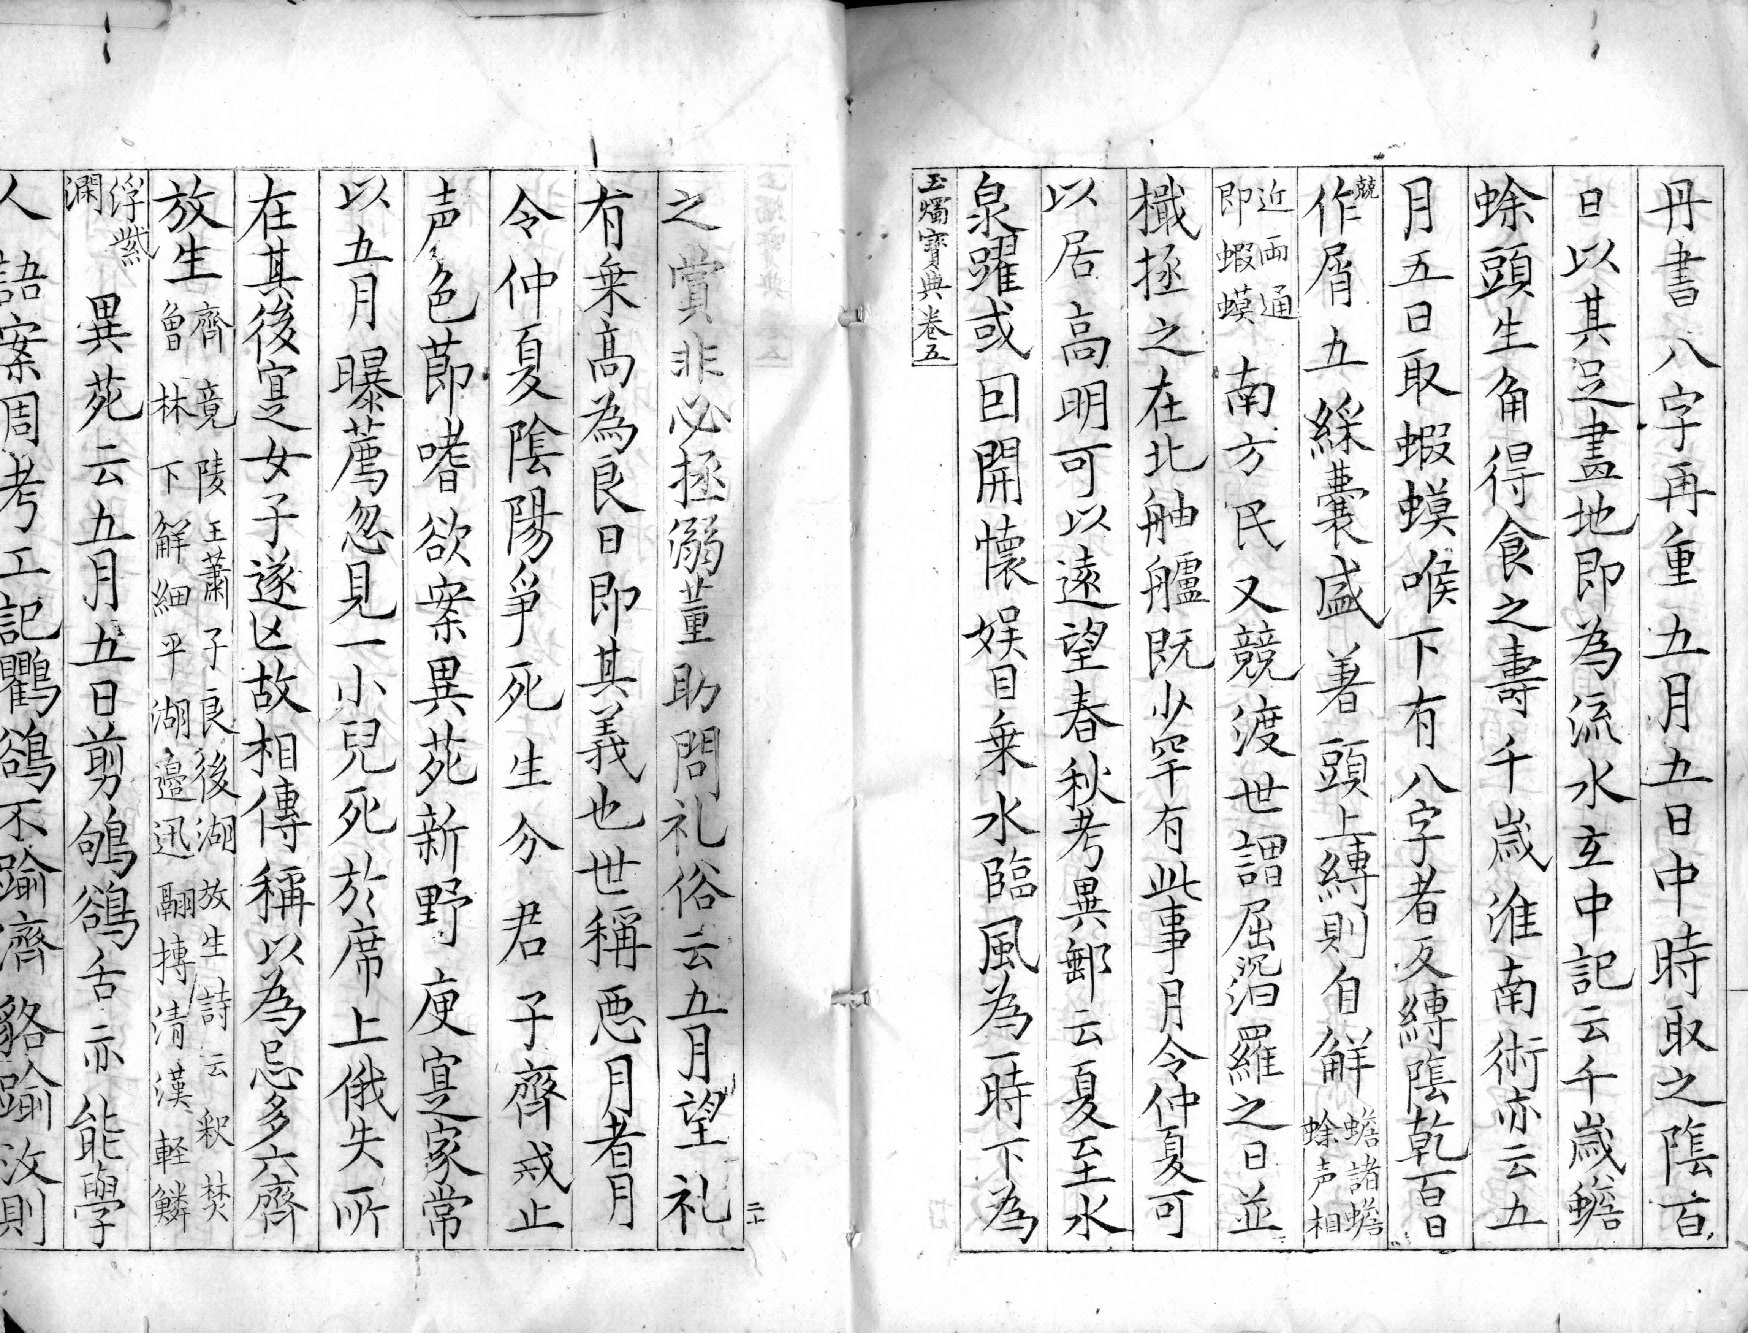 丹書八字再重五月五日中時取之陰百
日以其足畫地即為流水玄中記云千歲蟾
蜍頭生角得食之壽千歲淮南術亦云五
月五日取蝦蟆喉下有八字者反縛陰乾百日
作屑五綵囊盛著頭上縛則自解蟾諸蟾
蜍声相
近両通
即蝦蟆南方民又競渡世謂屈沉汨羅之日並
檝拯之在北舳艫既少罕有此事月令仲夏可
以居高明可以遠望春秋考異郵云夏至水
泉躍或因開懷娱目乗水臨風為一時下為
玉燭寳典卷五
之賞非必拯溺董助問礼俗云五月望礼
有乗高為良日即其義也世稱惡月者月
令仲夏陰陽爭死生分君子齊戒止
声色莭嗜欲案異苑新野庾寔家常
以五月曝薦忽見一小兒死於席上俄失所
在其後寔女子遂亡故相傳稱以為忌多六齊
放生齊竟陵王蕭子良後湖放生詩云釈焚
曾林下解細平湖邉迅翮摶清漢軽鱗
浮紫
瀾異苑云五月五日剪鴝鵒舌亦能學
人語案周考工記鸜鵒不踰濟貉踰汶則
二十